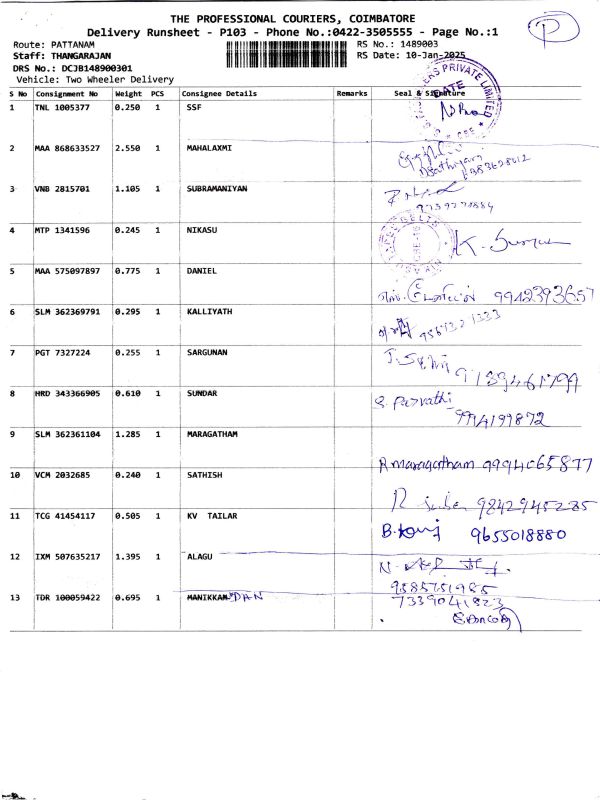 THE PROFESSIONAL COURIERS, COIMBATORE
Delivery Runsheet - P103 - Phone No.:0422-3505555 - Page No.:1
P
Route: PATTANAM
RS No.: 1489003
Staff: THANGARAJAN
RS Date: 10-Jan-2025
DRS No.: DCJB148900301
Vehicle: Two Wheeler Delivery
S No Consignment No Weight PCS Consignee Details Remarks Seal & Signature
1 TNL 1005377 0.250 1 SSF
2 MAA 868633527 2.550 1 MAHALAXMI
3 VNB 2815701 1.105 1 SUBRAMANIYAN
4 MTP 1341596 0.245 1 NIKASU
5 MAA 575097897 0.775 1 DANIEL 9942393657
6 SLM 362369791 0.295 1 KALLIYATH
7 PGT 7327224 0.255 1 SARGUNAN
8 HRD 343366905 0.610 1 SUNDAR S. Parvathi
9994199872
9 SLM 362361104 1.285 1 MARAGATHAM
R maragatham 9994065877
10 VCM 2032685 0.240 1 SATHISH
9842945285
11 TCG 41454117 0.505 1 KV TAILAR
9655018880
12 IXM 507635217 1.395 1 ALAGU
9585751985
13 TDR 100059422 0.695 1 MANIKKAN DAN
7339041823